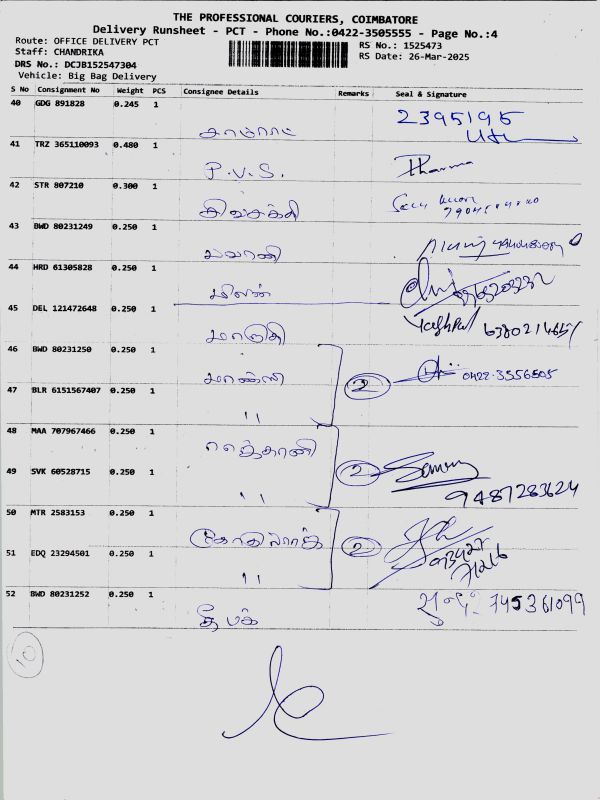 THE PROFESSIONAL COURIERS, COIMBATORE
Delivery Runsheet - PCT - Phone No.:0422-3505555 - Page No.:4
Route: OFFICE DELIVERY PCT
RS No.: 1525473
Staff: CHANDRIKA
RS Date: 26-Mar-2025
DRS No.: DCJB152547304
Vehicle: Big Bag Delivery
S No Consignment No Weight PCS Consignee Details Remarks Seal & Signature
40 GDG 891828 0.245 1 2395195
41 TRZ 365110093 0.480 1 P.V.S. Dharma
42 STR 807210 0.300 1 சிவசக்தி
43 BWD 80231249 0.250 1 பவானி
44 HRD 61305828 0.250 1 மிலன்
45 DEL 121472648 0.250 1 மாருதி
46 BWD 80231250 0.250 1 2 0422-3556505
47 BLR 6151567407 0.250 1 "
48 MAA 707967466 0.250 1
49 SVK 60528715 0.250 1 " 2 9487283624
50 MTR 2583153 0.250 1 2
51 EDQ 23294501 0.250 1 "
52 BWD 80231252 0.250 1 தீபக் 745361099
10